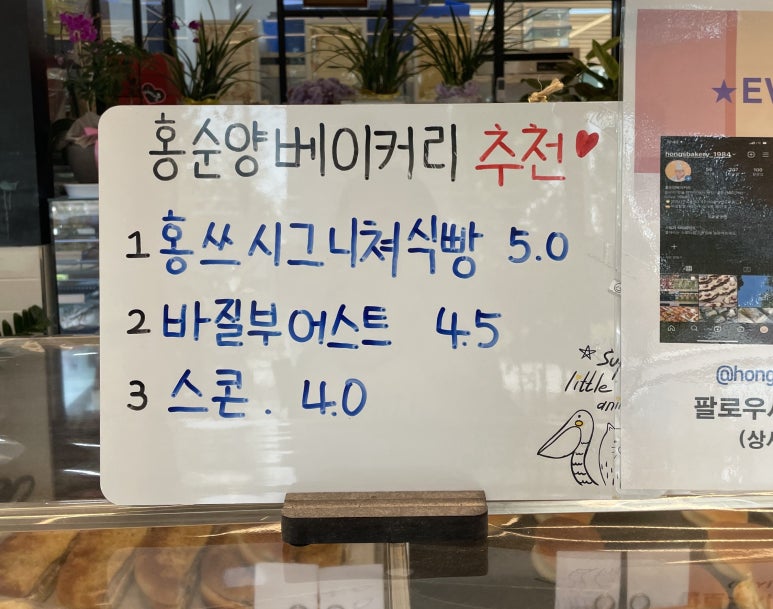 홍순양베이커리 추천♥
1 홍쓰시그니쳐식빵 5.0
2 바질부어스트 4.5
3 스콘. 4.0
☆ Su
little
ani
★EV
hongsbakery_1984
@hong
팔로우
(상시